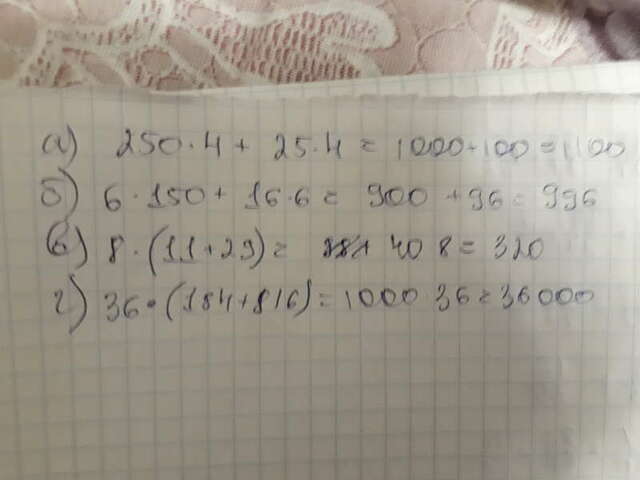 а) 250·4+ 25·4 = 1000+100 = 1100
б) 6·150+ 16·6 = 900 + 96 = 996
в) 8·(11+29) = 40 8 = 320
г) 36·(184+816) = 1000·36 = 36000